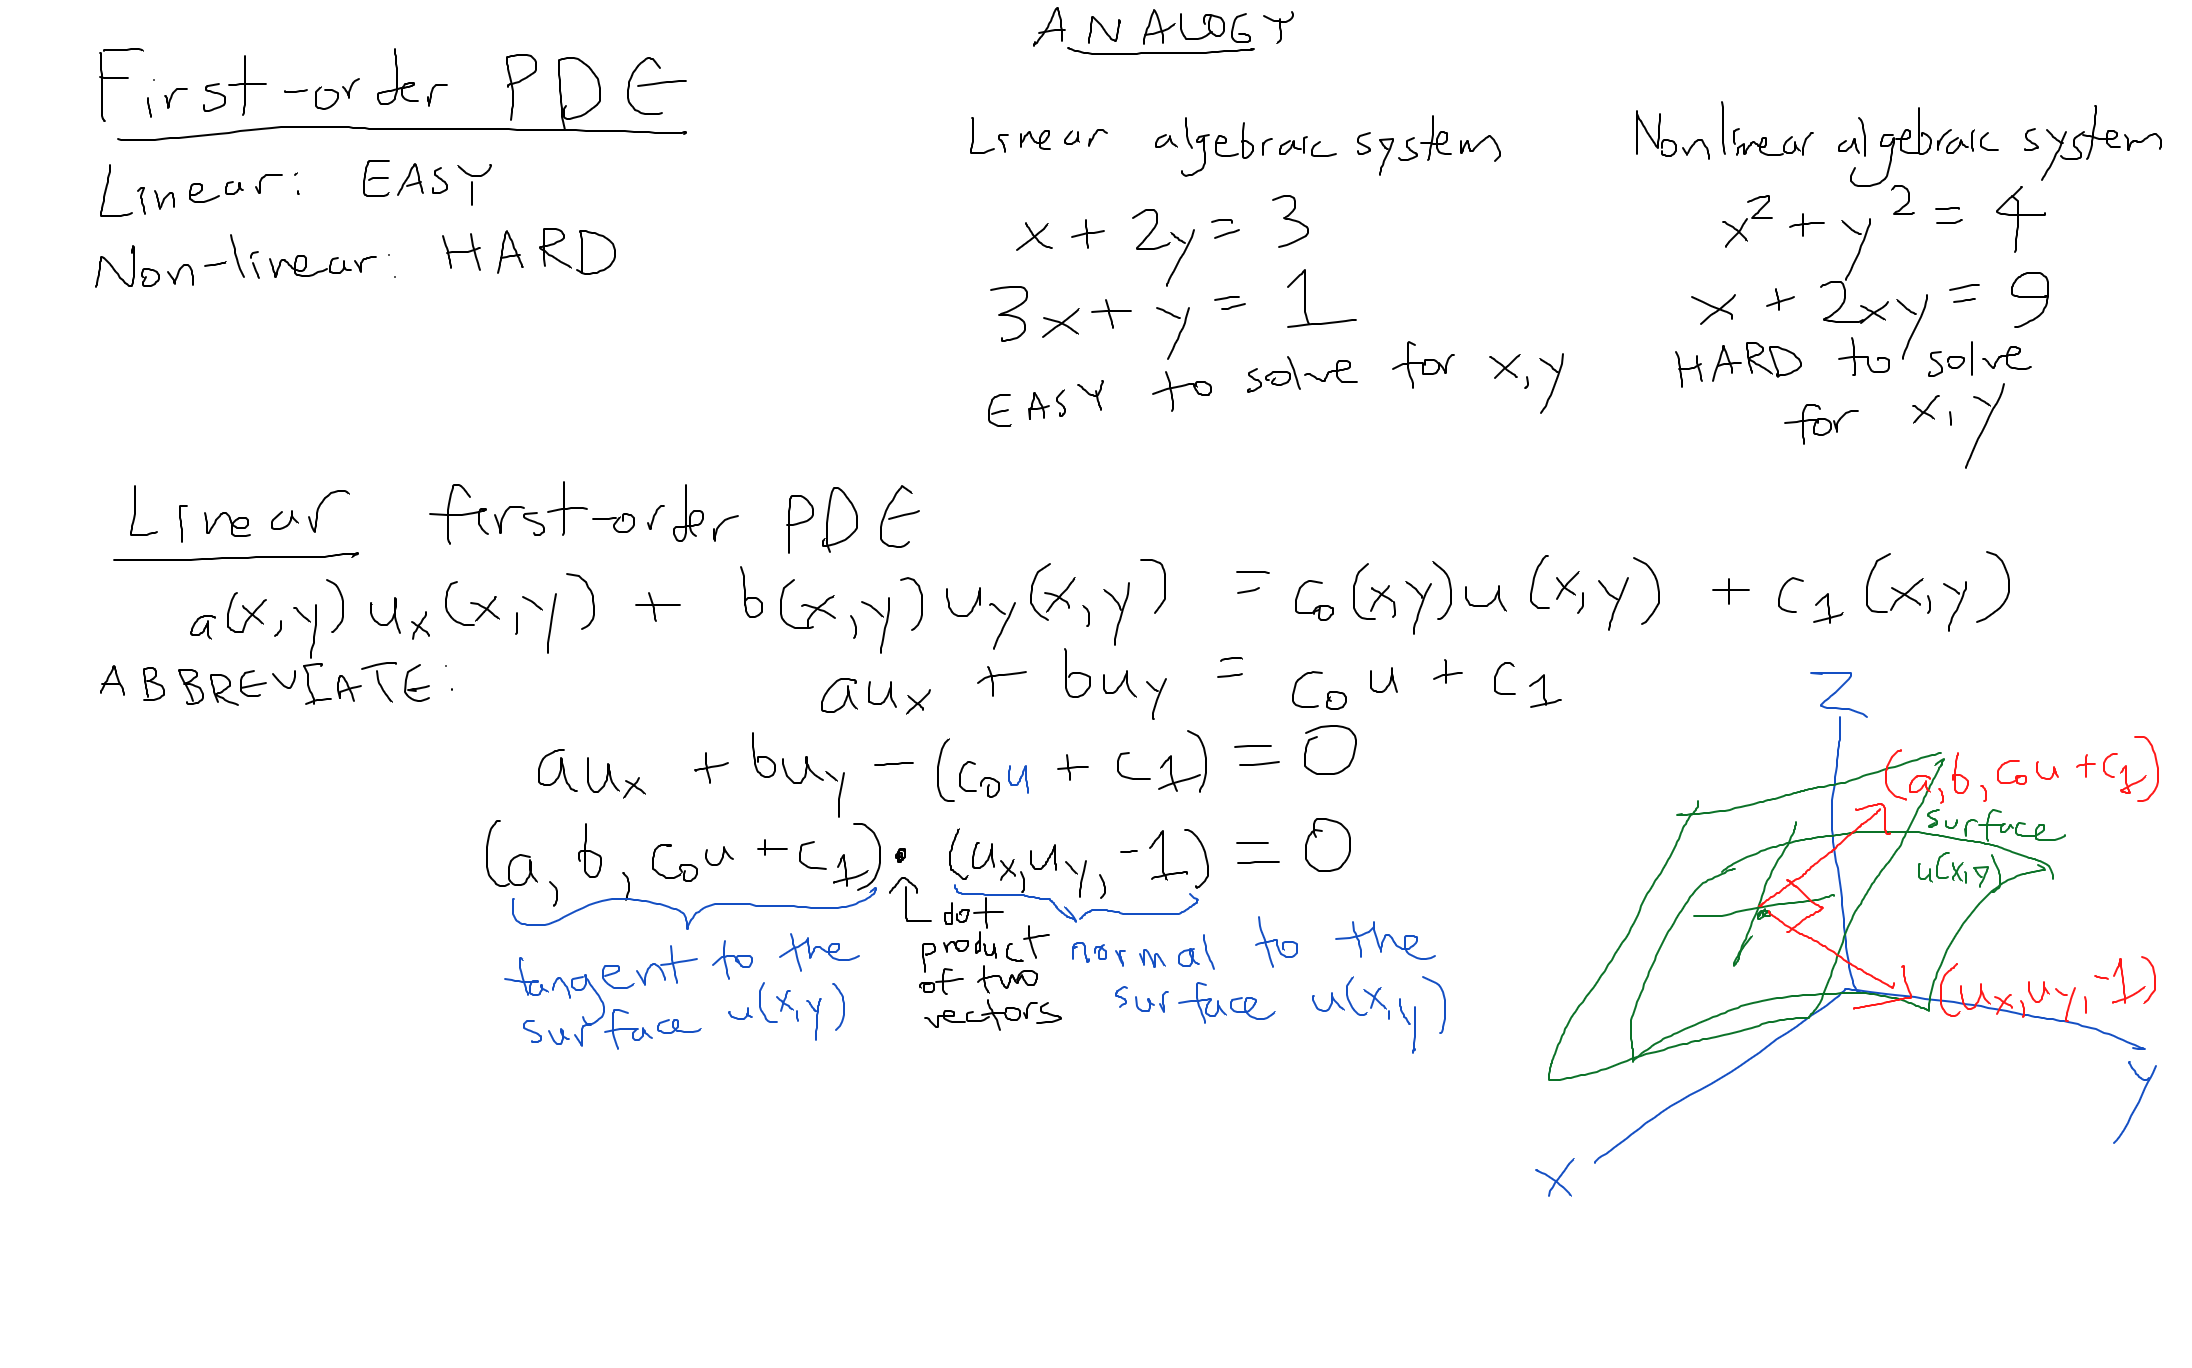 First-order PDE
Linear: EASY
Non-linear: HARD
ANALOGY
Linear algebraic system
x + 2y = 3
3x + y = 1
EASY to solve for x, y
Nonlinear algebraic system
x² + y² = 4
x + 2xy = 9
HARD to solve
for x, y
Linear first-order PDE
a(x,y) uₓ(x,y) + b(x,y) u_y(x,y) = c₀(x,y)u(x,y) + c₁(x,y)
ABBREVIATE:
auₓ + bu_y = c₀u + c₁
auₓ + bu_y - (c₀u + c₁) = 0
(a, b, c₀u + c₁) • (uₓ, u_y, -1) = 0
tangent to the
surface u(x,y)
dot
product
of two
vectors
normal to the
surface u(x,y)
Z
(a, b, c₀u + c₁)
surface
u(x,y)
(uₓ, u_y, -1)
y
x